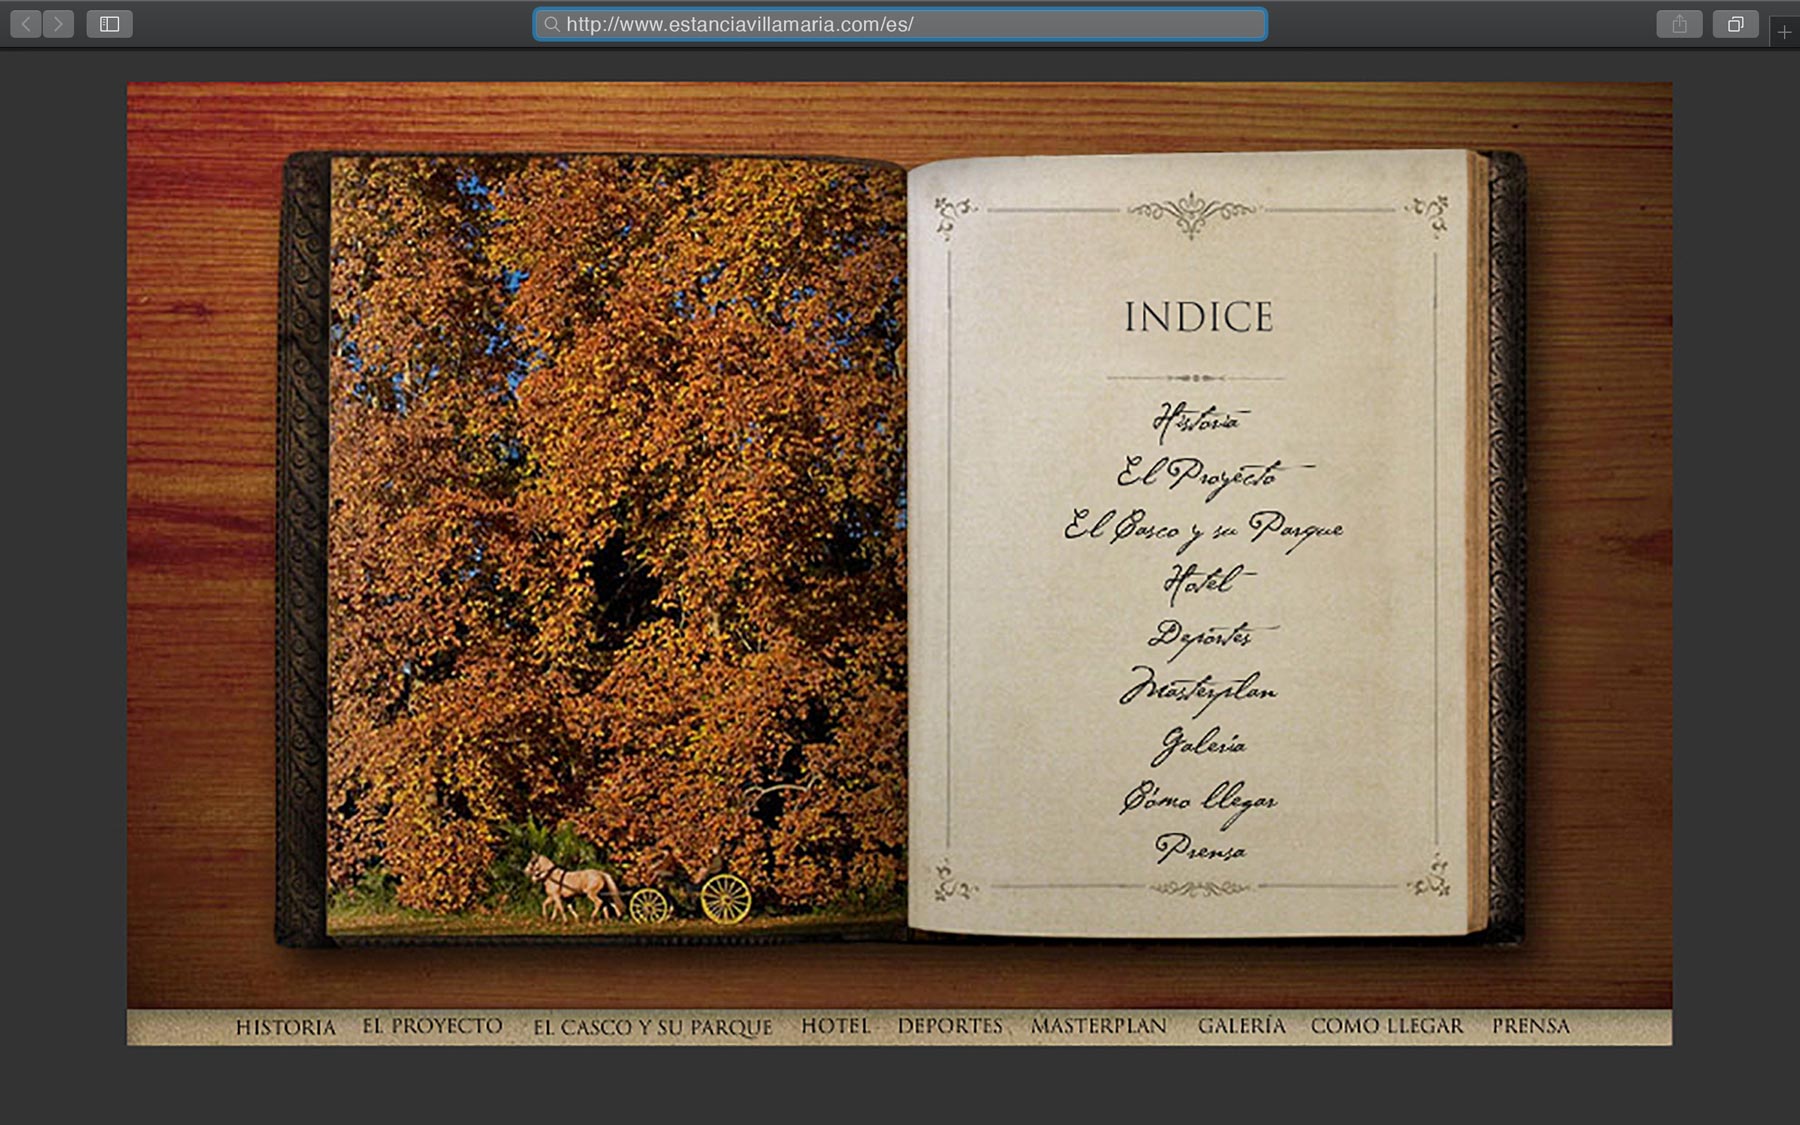 http://www.estanciavillamaria.com/es/
INDICE
Historia
El Proyecto
El Casco y su Parque
Hotel
Deportes
Masterplan
Galería
Cómo llegar
Prensa
HISTORIA EL PROYECTO EL CASCO Y SU PARQUE HOTEL DEPORTES MASTERPLAN GALERÍA COMO LLEGAR PRENSA